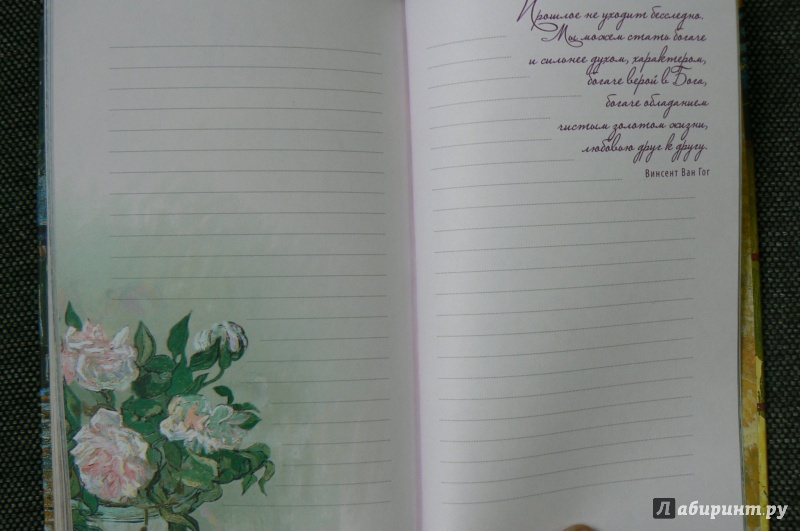 Прошлое не уходит бесследно.
Мы можем стать богаче
и сильнее духом, характером,
богаче верой в Бога,
богаче обладанием
чистым золотом жизни,
любовью друг к другу.
Винсент Ван Гог
Лабиринт.ру